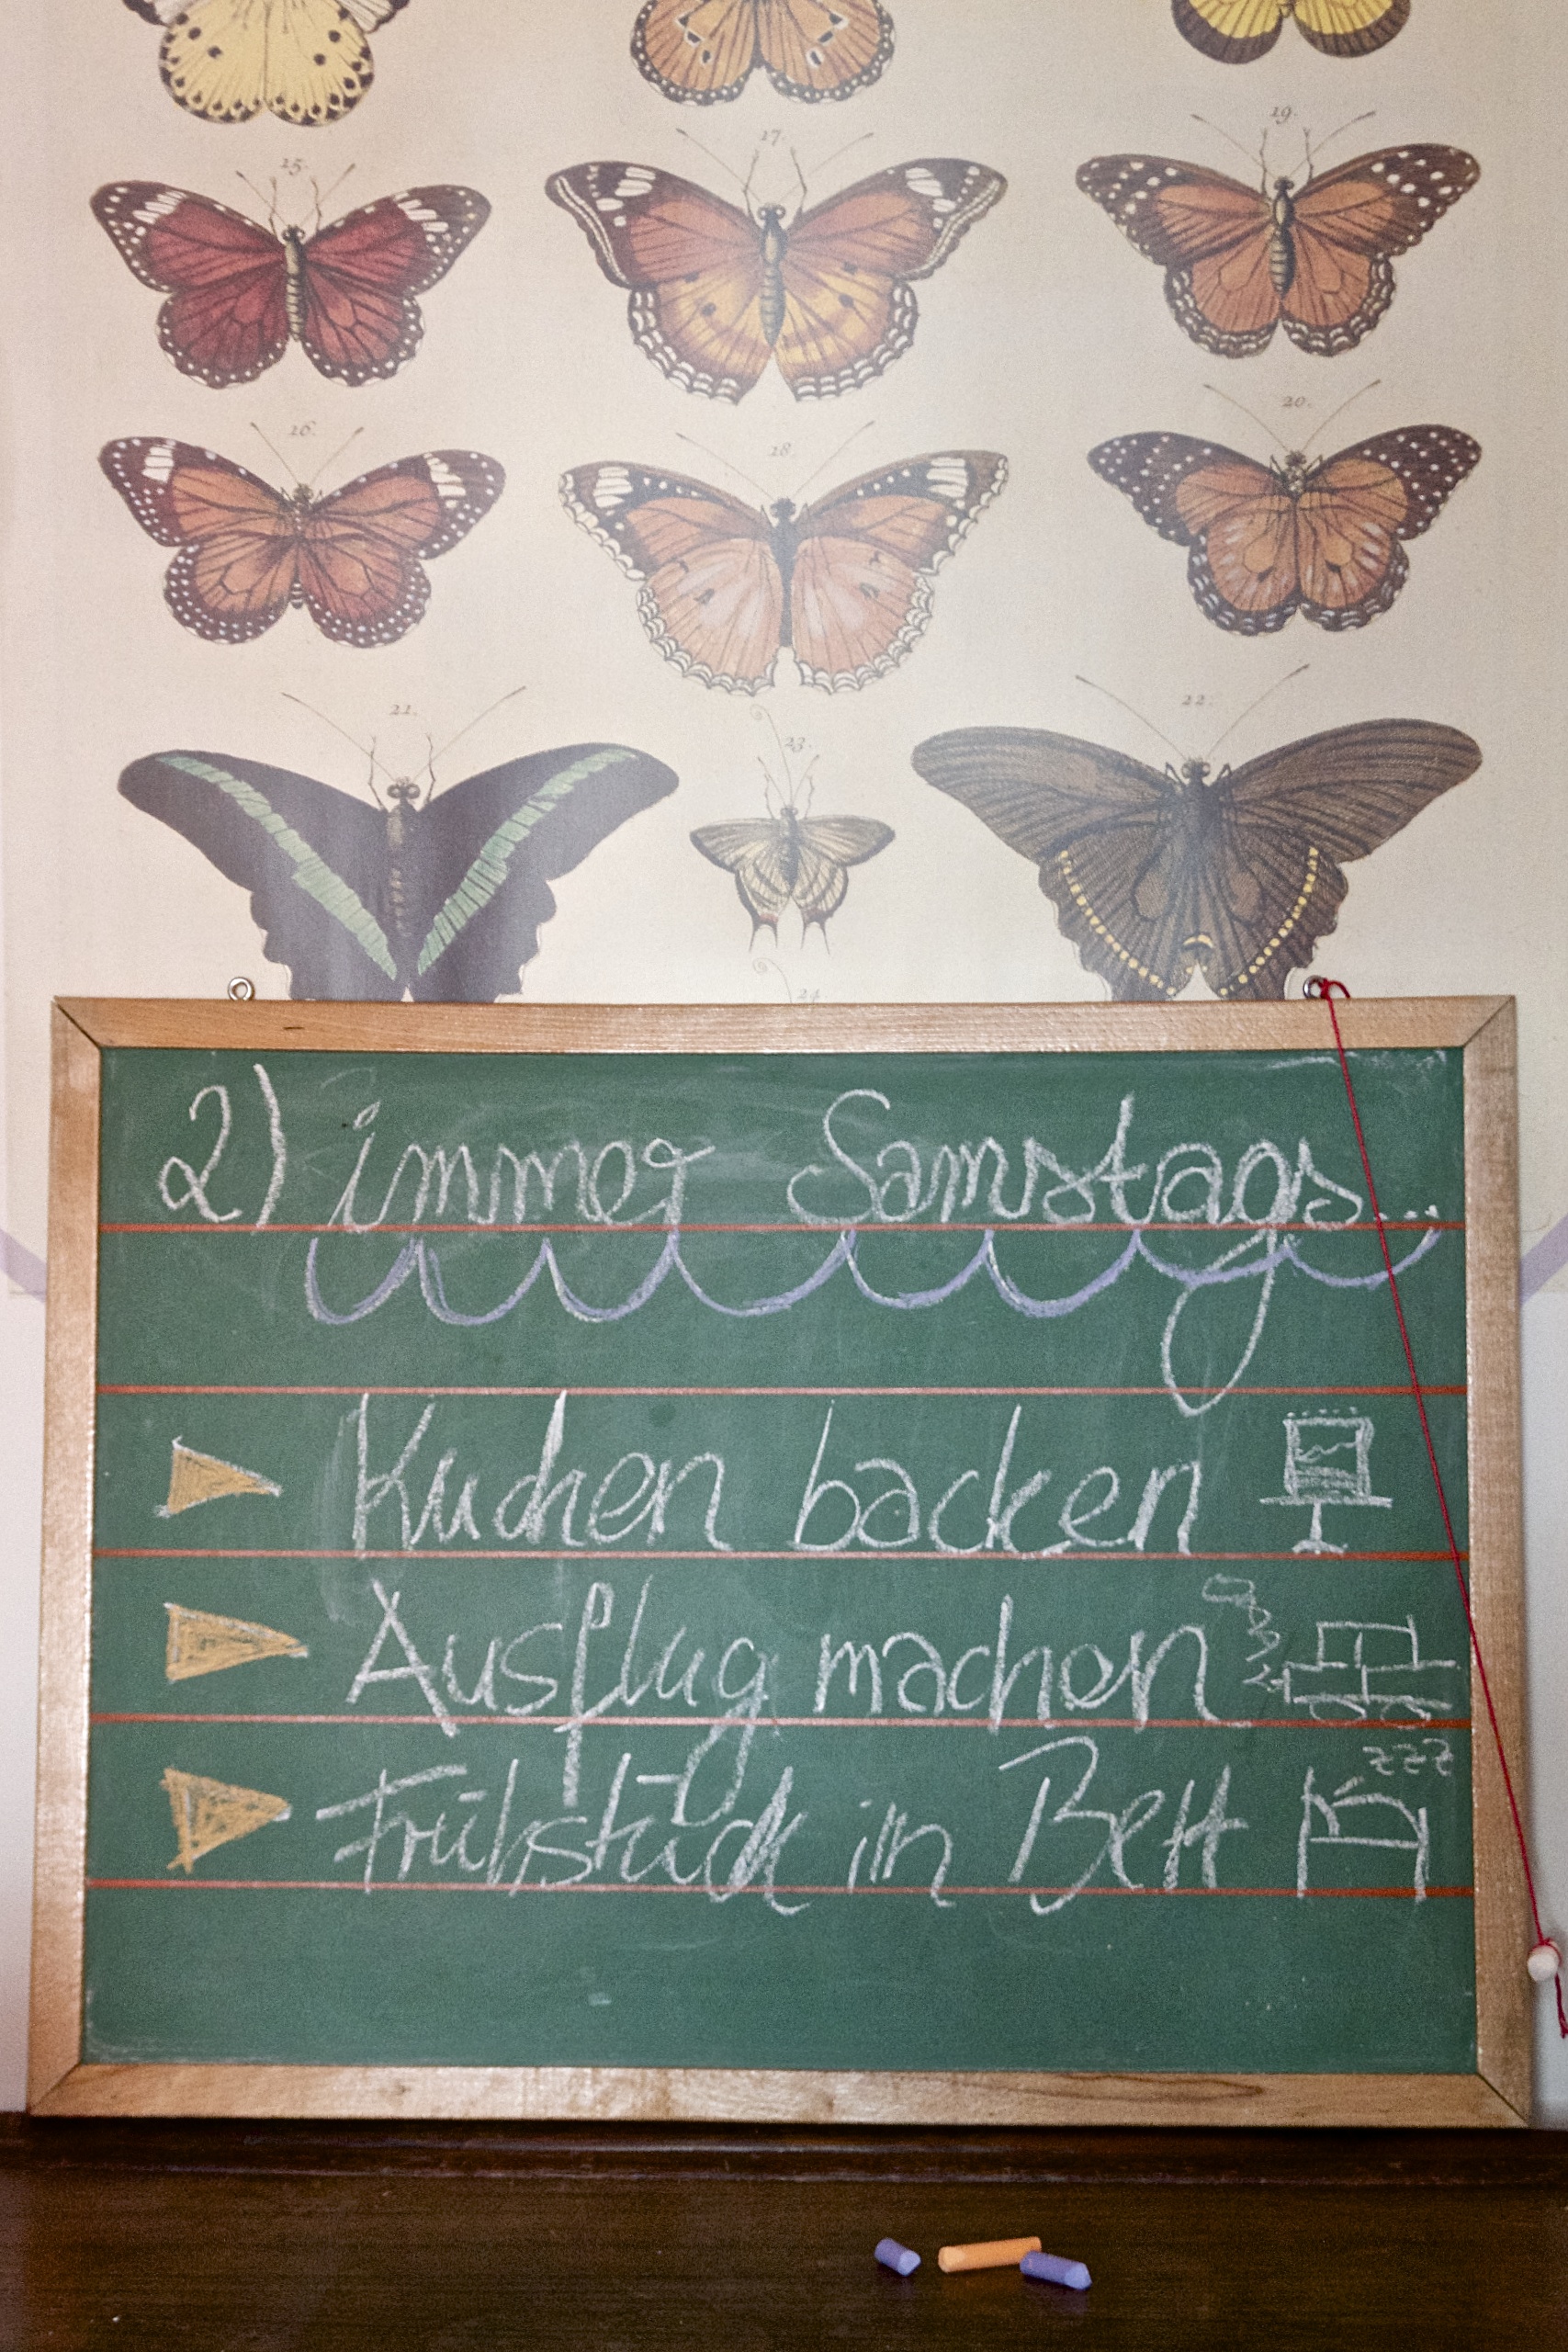 15.
17.
19.
16.
18.
20.
21.
23.
22.
24
2) immer Samstags...
Kuchen backen
Ausflug machen
zzz
Frühstück im Bett